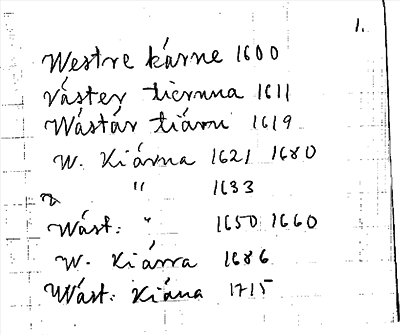 1.
Westre kárne 1600
väster tiernna 1611
Wästär tiärn 1619
W. Kiärna 1621 1680
" 1633
Wäst: " 1650 1660
W. Kiärra 1686
Wäst: Kiäna 1715